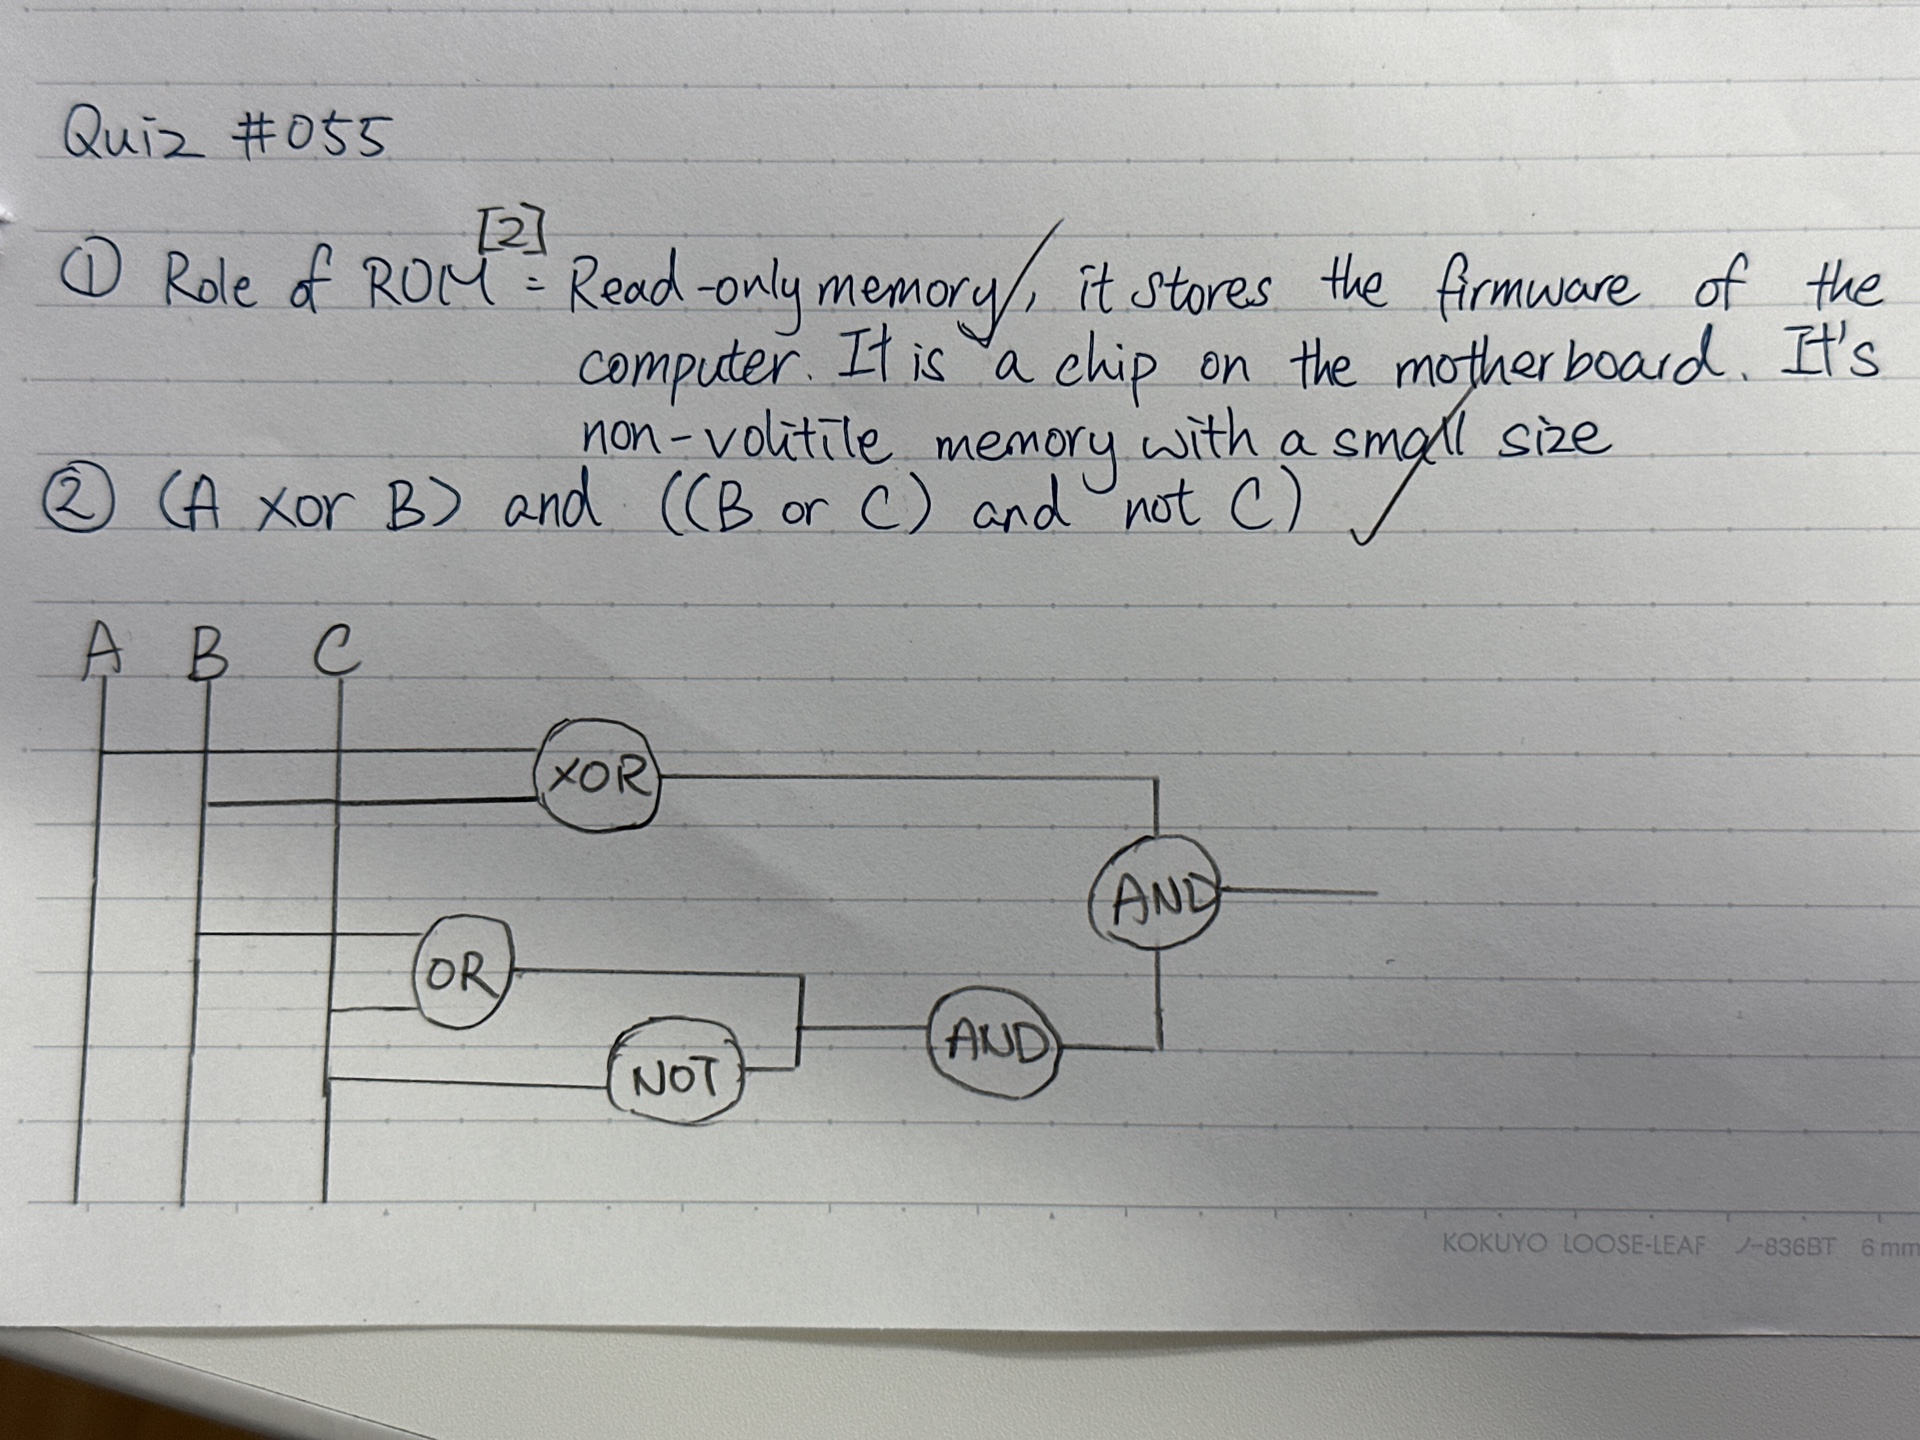 Quiz #055
[2]
① Role of ROM = Read-only memory, it stores the firmware of the
computer. It is a chip on the motherboard. It's
non-volitile memory with a small size
② (A xor B) and ((B or C) and not C)
A B C
XOR
AND
OR
AND
NOT
KOKUYO LOOSE-LEAF ノ-836BT 6 mm